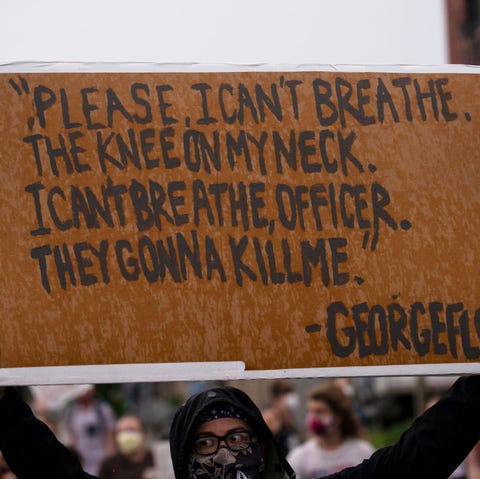 "PLEASE, I CAN'T BREATHE.
THE KNEE ON MY NECK.
I CAN'T BREATHE, OFFICER.
THEY GONNA KILL ME."
-GEORGE FL